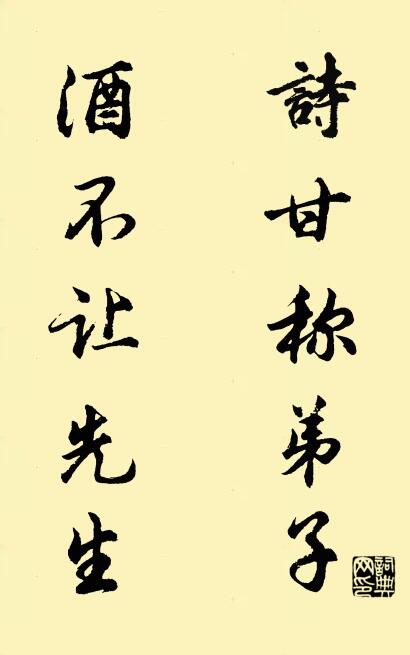 詩甘称弟子
酒不让先生
詞典网印